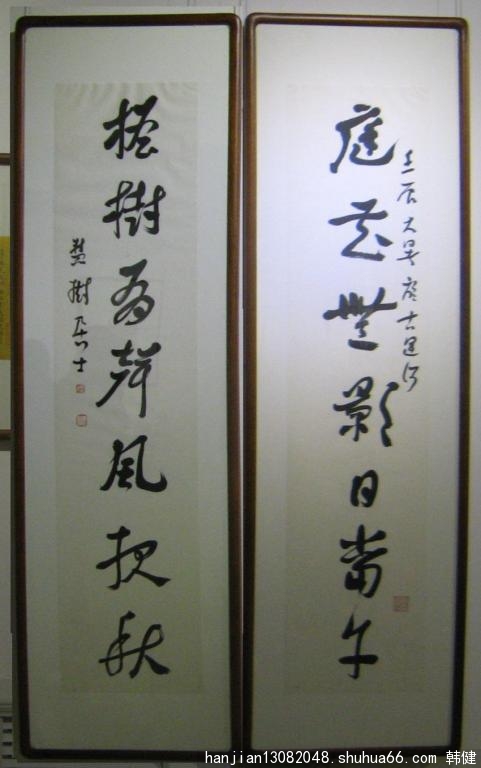 庭花無影日當午
壬辰大暑於古運河
檐樹有聲風報秋
樹居士
hanjian13082048.shuhua66.com 韩健